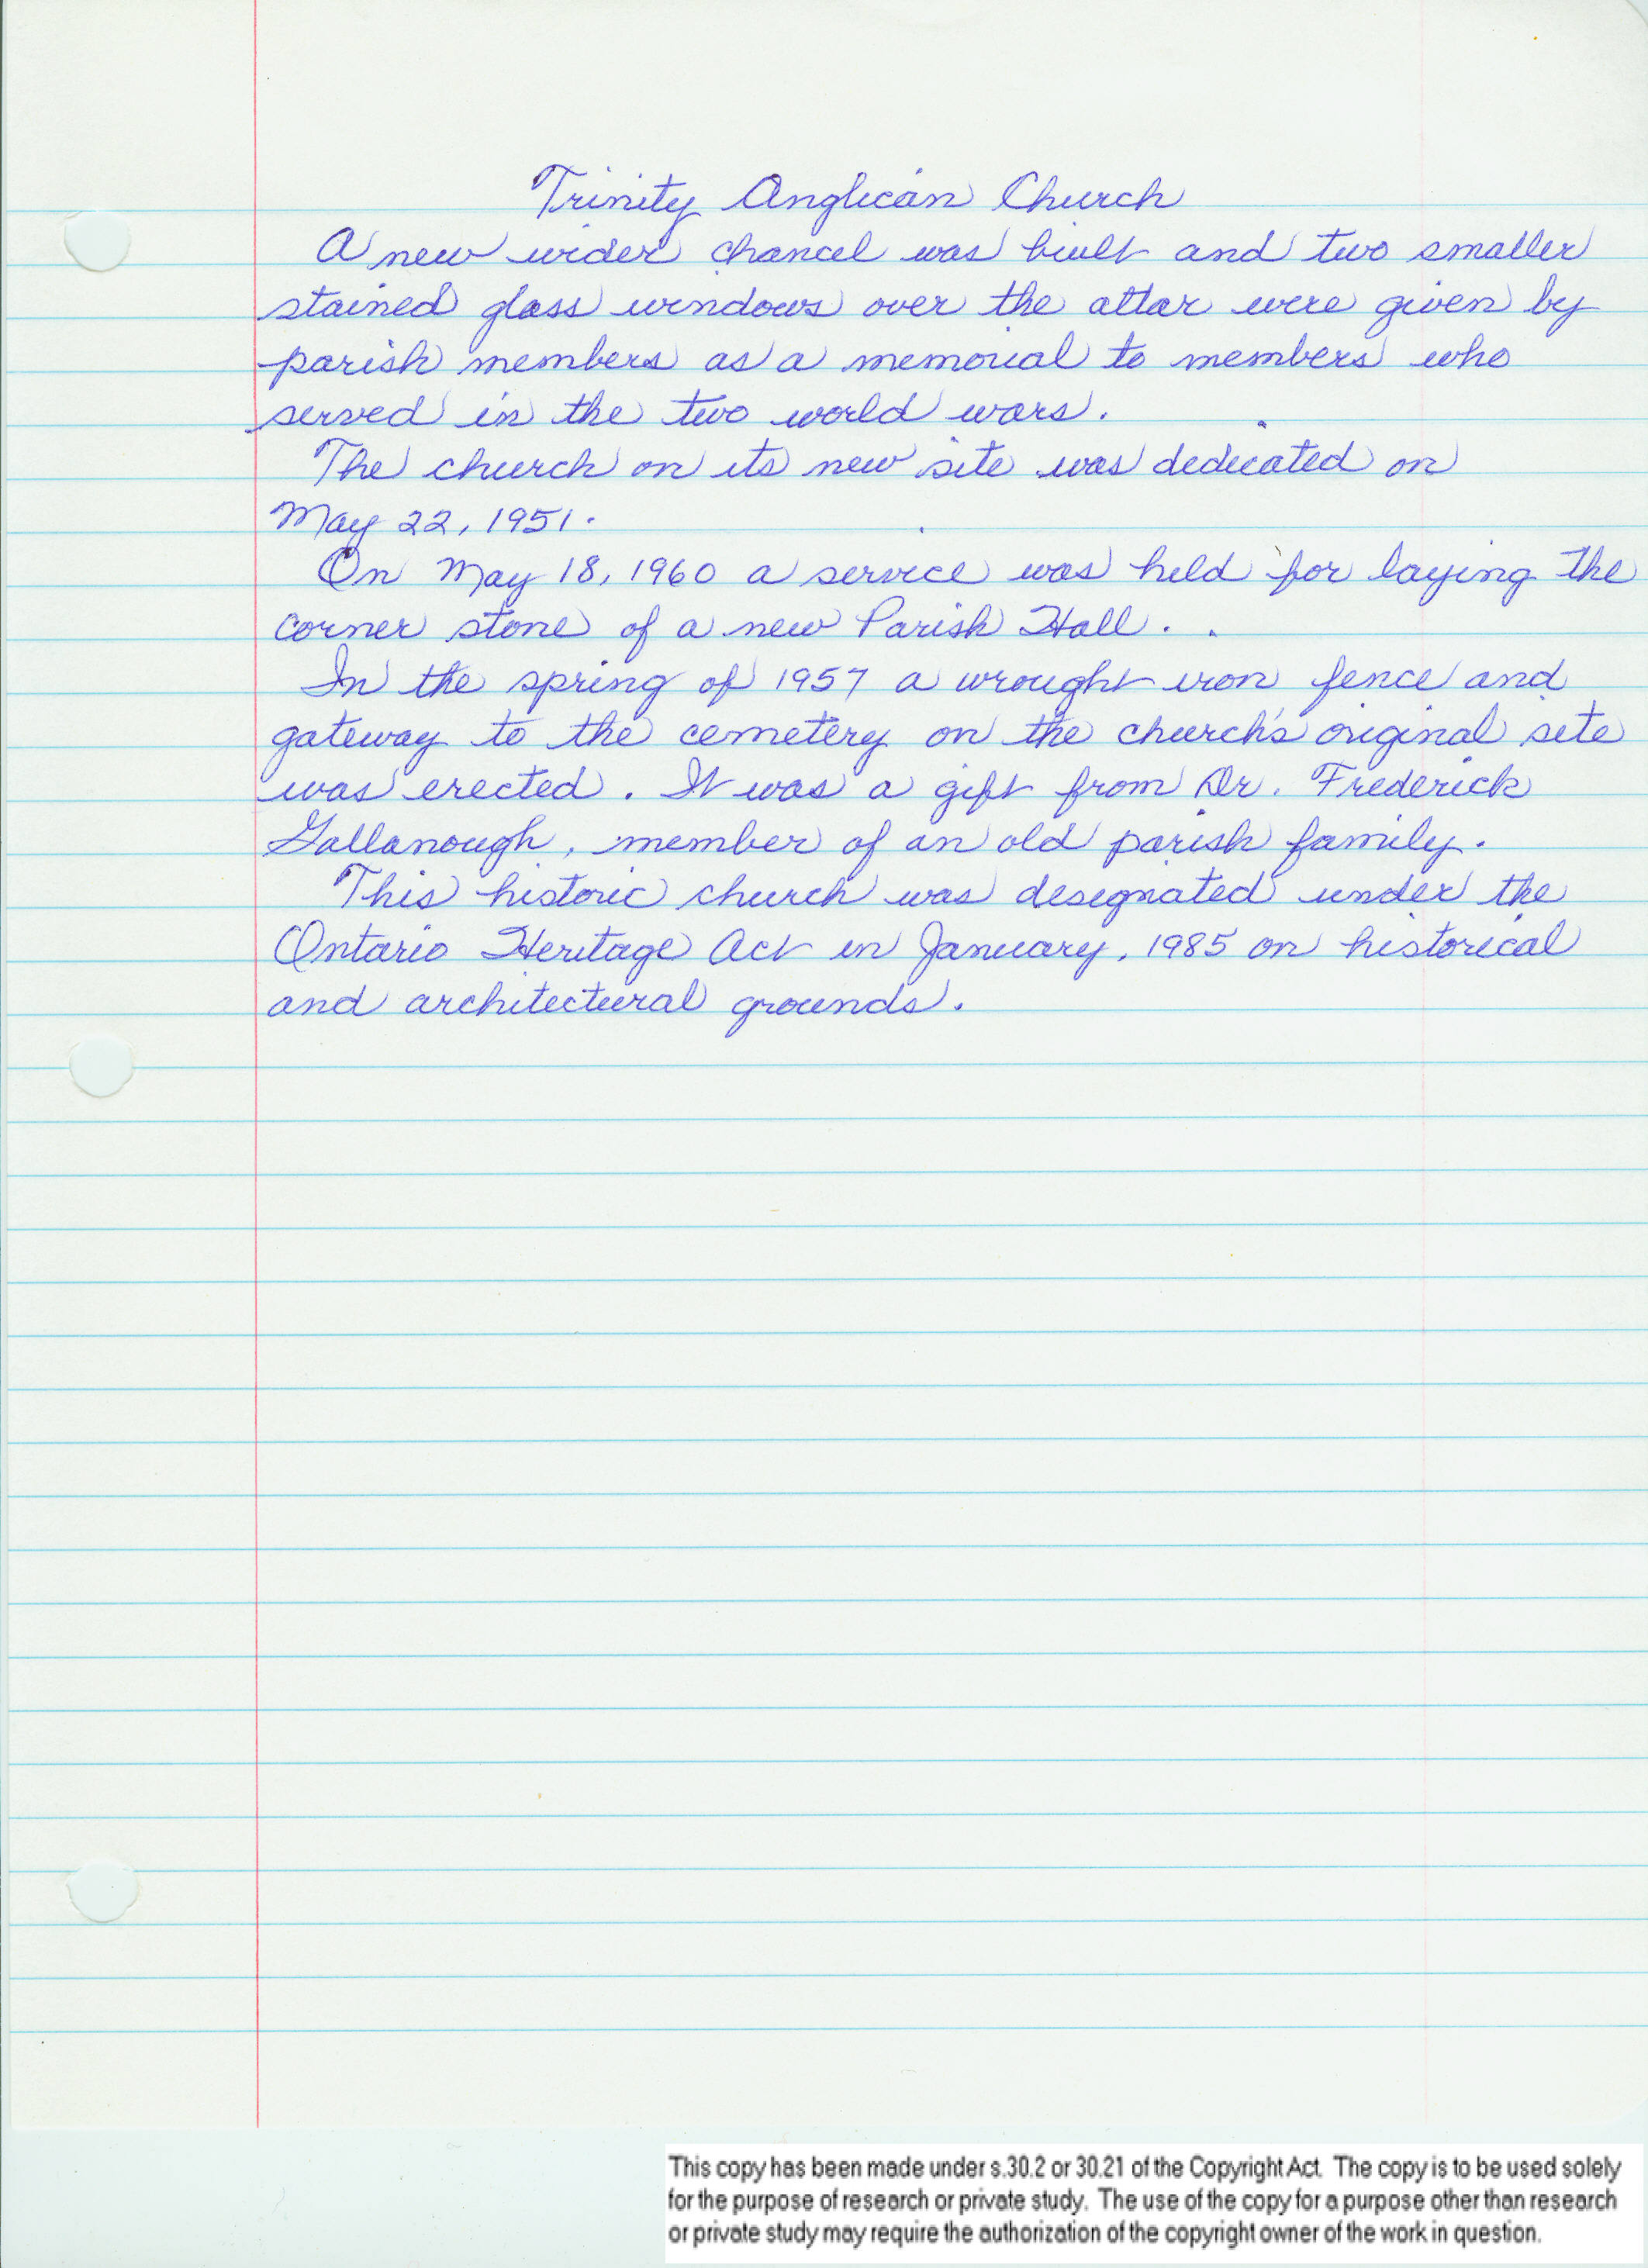 Trinity Anglican Church
A new wider chancel was built and two smaller
stained glass windows over the altar were given by
parish members as a memorial to members who
served in the two world wars.
The church on its new site was dedicated on
May 22, 1951.
On May 18, 1960 a service was held for laying the
corner stone of a new Parish Hall.
In the spring of 1957 a wrought iron fence and
gateway to the cemetery on the church's original site
was erected. It was a gift from Dr. Frederick
Gallanough, member of an old parish family.
This historic church was designated under the
Ontario Heritage Act in January, 1985 on historical
and architectural grounds.
This copy has been made under s.30.2 or 30.21 of the Copyright Act. The copy is to be used solely
for the purpose of research or private study. The use of the copy for a purpose other than research
or private study may require the authorization of the copyright owner of the work in question.